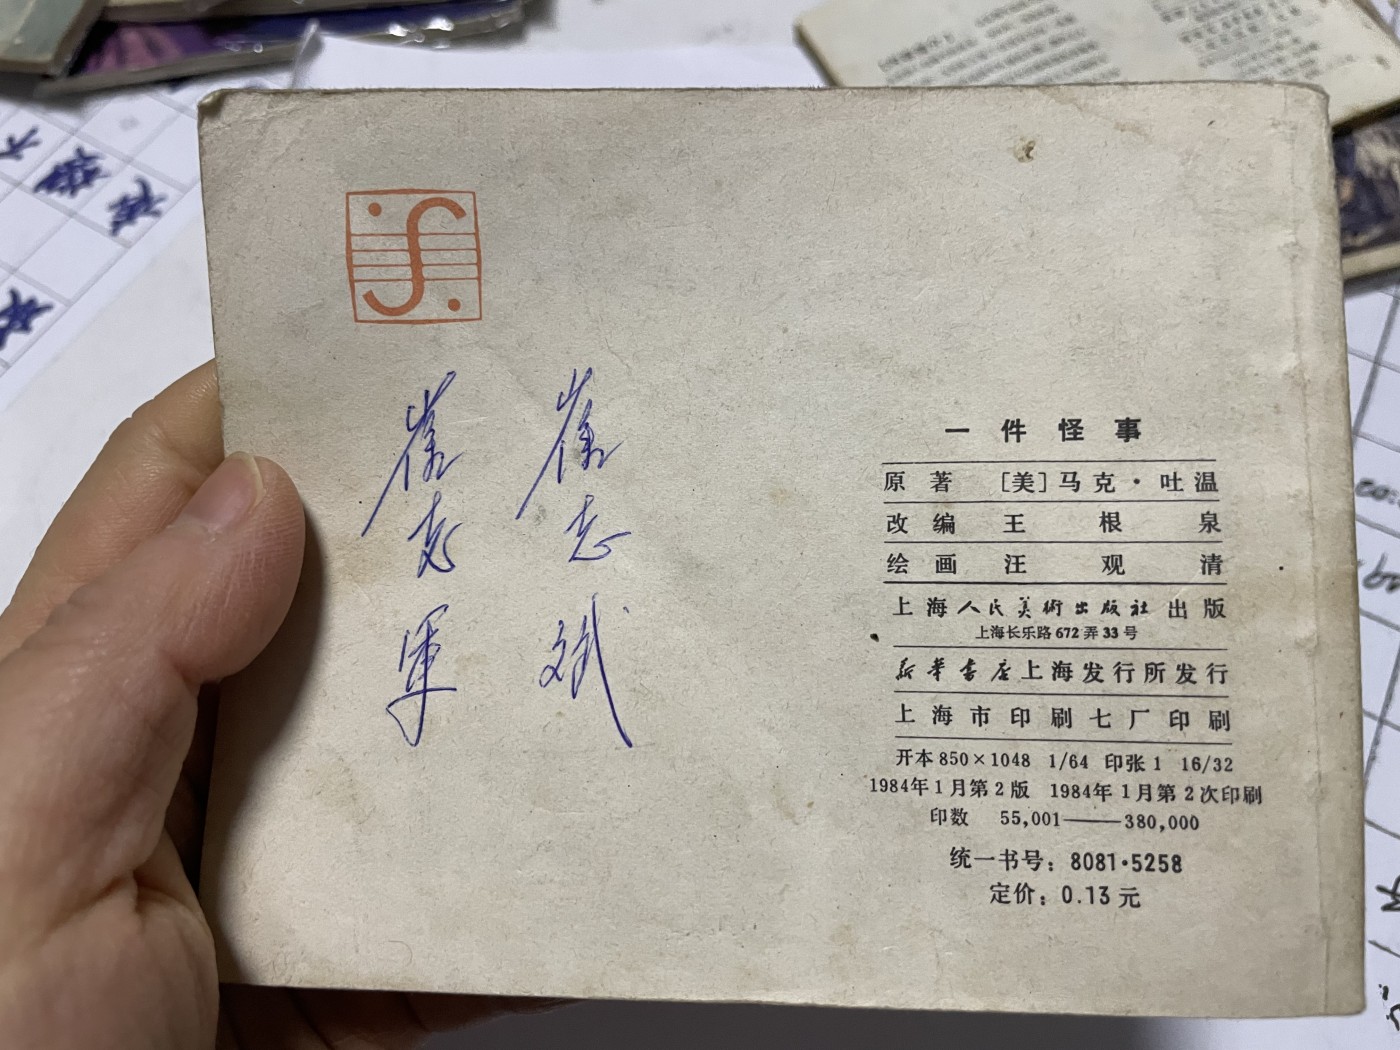 崔志斌
崔志军
一件怪事
原著 [美]马克·吐温
改编 王根泉
绘画 汪观清
上海人民美術出版社出版
上海长乐路672弄33号
新华书店上海发行所发行
上海市印刷七厂印刷
开本850×1048 1/64 印张1 16/32
1984年1月第2版 1984年1月第2次印刷
印数 55,001——380,000
统一书号：8081·5258
定价：0.13元